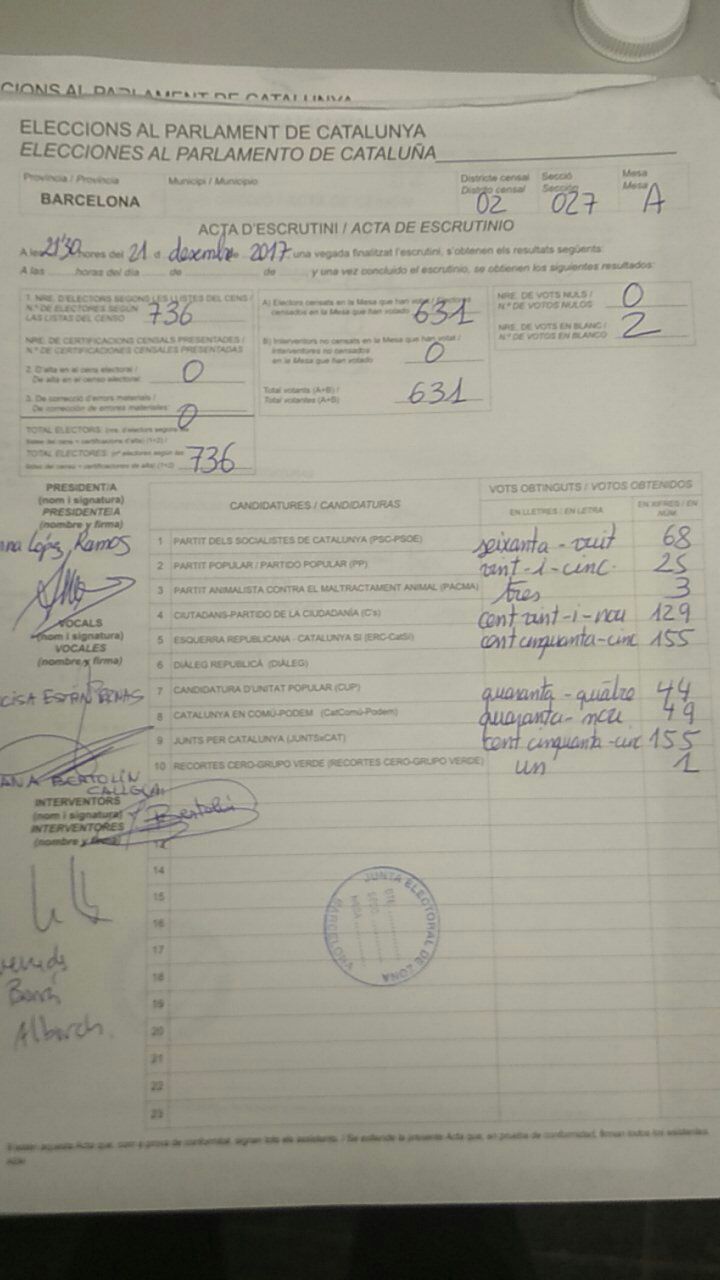 CIONS AL PARLAMENT DE CATALUNYA
ELECCIONS AL PARLAMENT DE CATALUNYA
ELECCIONES AL PARLAMENTO DE CATALUÑA
Província / Provincia
BARCELONA
Municipi / Municipio
Districte censal
Distrito censal
02
Secció
Sección
027
Mesa
Mesa
A
ACTA D'ESCRUTINI / ACTA DE ESCRUTINIO
A les 21'30 hores del 21 d desembre 2017 una vegada finalitzat l'escrutini, s'obtenen els resultats següents:
A las horas del día de de y una vez concluido el escrutinio, se obtienen los siguientes resultados:
1. NRE. D'ELECTORS SEGONS LES LLISTES DEL CENS /
N.º DE ELECTORES SEGÚN
LAS LISTAS DEL CENSO 736
NRE. DE CERTIFICACIONS CENSALS PRESENTADES /
N.º DE CERTIFICACIONES CENSALES PRESENTADAS
2. D'alta en el cens electoral /
De alta en el censo electoral: 0
3. De correcció d'errors materials /
De corrección de errores materiales: 0
TOTAL ELECTORS:
TOTAL ELECTORES: 736
A) Electors censats en la Mesa que han votat / Electores
censados en la Mesa que han votado 631
B) Interventors no censats en la Mesa que han votat /
Interventores no censados
en la Mesa que han votado 0
Total votants (A+B) /
Total votantes (A+B) 631
NRE. DE VOTS NULS /
N.º DE VOTOS NULOS 0
NRE. DE VOTS EN BLANC /
N.º DE VOTOS EN BLANCO 2
PRESIDENT/A
(nom i signatura)
PRESIDENTE/A
(nombre y firma)
López Ramos
VOCALS
(nom i signatura)
VOCALES
(nombre y firma)
BERTOLÍN
INTERVENTORS
(nom i signatura)
INTERVENTORES
(nombre y firma)
Bertolín
CANDIDATURES / CANDIDATURAS
VOTS OBTINGUTS / VOTOS OBTENIDOS
EN LLETRES / EN LETRA
EN XIFRES / EN NÚM.
1 PARTIT DELS SOCIALISTES DE CATALUNYA (PSC-PSOE) seixanta-vuit 68
2 PARTIT POPULAR / PARTIDO POPULAR (PP) vint-i-cinc 25
3 PARTIT ANIMALISTA CONTRA EL MALTRACTAMENT ANIMAL (PACMA) tres 3
4 CIUTADANS-PARTIDO DE LA CIUDADANÍA (C's) cent vint-i-nou 129
5 ESQUERRA REPUBLICANA - CATALUNYA SI (ERC-CatSí) cent cinquanta-cinc 155
6 DIÀLEG REPUBLICÀ (DIÀLEG)
7 CANDIDATURA D'UNITAT POPULAR (CUP) quaranta-quatre 44
8 CATALUNYA EN COMÚ-PODEM (CatComú-Podem) quaranta-nou 49
9 JUNTS PER CATALUNYA (JUNTSxCAT) cent cinquanta-cinc 155
10 RECORTES CERO-GRUPO VERDE (RECORTES CERO-GRUPO VERDE) un 1
13
14
15
16
17
18
19
20
21
22
23
JUNTA ELECTORAL DE ZONA
BARCELONA